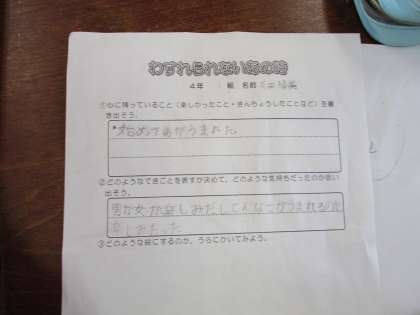 わすれられないあの時
4年　：　組　名前
①心に残っていること（楽しかったこと・きんちょうしたことなど）を書
き出そう。
始めて弟がうまれた
②どのようなできごとを表すか決めて、どのような気持ちだったのか思い
出そう。
男か女か楽しみだしてんなこがうまれるのか
楽しみだった
③どのような絵にするのか、うらにかいてみよう。